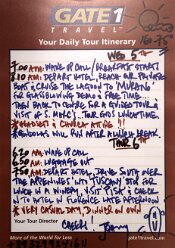 GATE 1
TRAVEL
Your Daily Tour Itinerary
WED 5TH
7:00 AM: WAKE UP CALL / BREAKFAST START!
8:10 AM: DEPART HOTEL, REACH OUR PRIVATE
BOAT & CRUISE THE LAGOON TO MURANO
FOR GLASSBLOWING DEMO & FREE TIME.
THEN BACK TO CENTRE FOR A GUIDED TOUR &
VISIT OF S. MARCO. TOUR ENDS LUNCHTIME.
TOUR 6TH
6:20 AM: WAKE UP CALL
6:50 AM: LUGGAGE OUT
7:50 AM: DEPART HOTEL, DRIVE SOUTH OVER
THE APPENNINES INTO TUSCANY STOP FOR
LUNCH IN A WINERY, VISIT & CHECK
IN TO HOTEL IN FLORENCE LATE AFTERNOON
VERY CASUAL DAY, DINNER ON OWN
Your Tour Director
CHEERS!
More of the World for Less
gate1travel.com